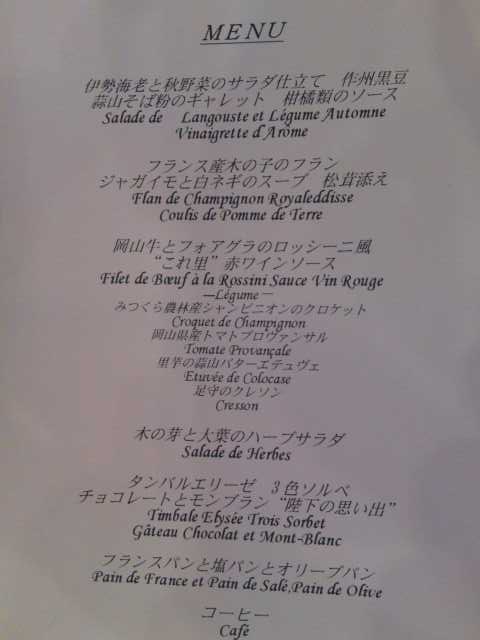 MENU
伊勢海老と秋野菜のサラダ仕立て　作州黒豆
蒜山そば粉のギャレット　柑橘類のソース
Salade de Langouste et Légume Automne
Vinaigrette d'Arôme
フランス産木の子のフラン
ジャガイモと白ネギのスープ　松茸添え
Flan de Champignon Royaleddisse
Coulis de Pomme de Terre
岡山牛とフォアグラのロッシーニ風
“これ里”赤ワインソース
Filet de Bœuf à la Rossini Sauce Vin Rouge
―Légume―
みつくら農林産シャンピニオンのクロケット
Croquet de Champignon
岡山県産トマトプロヴァンサル
Tomate Provançale
里芋の蒜山バターエテュヴェ
Etuvée de Colocase
足守のクレソン
Cresson
木の芽と大葉のハーブサラダ
Salade de Herbes
タンバルエリーゼ　3色ソルベ
チョコレートとモンブラン“陛下の思い出”
Timbale Elysée Trois Sorbet
Gâteau Chocolat et Mont-Blanc
フランスパンと塩パンとオリーブパン
Pain de France et Pain de Salé,Pain de Olive
コーヒー
Café